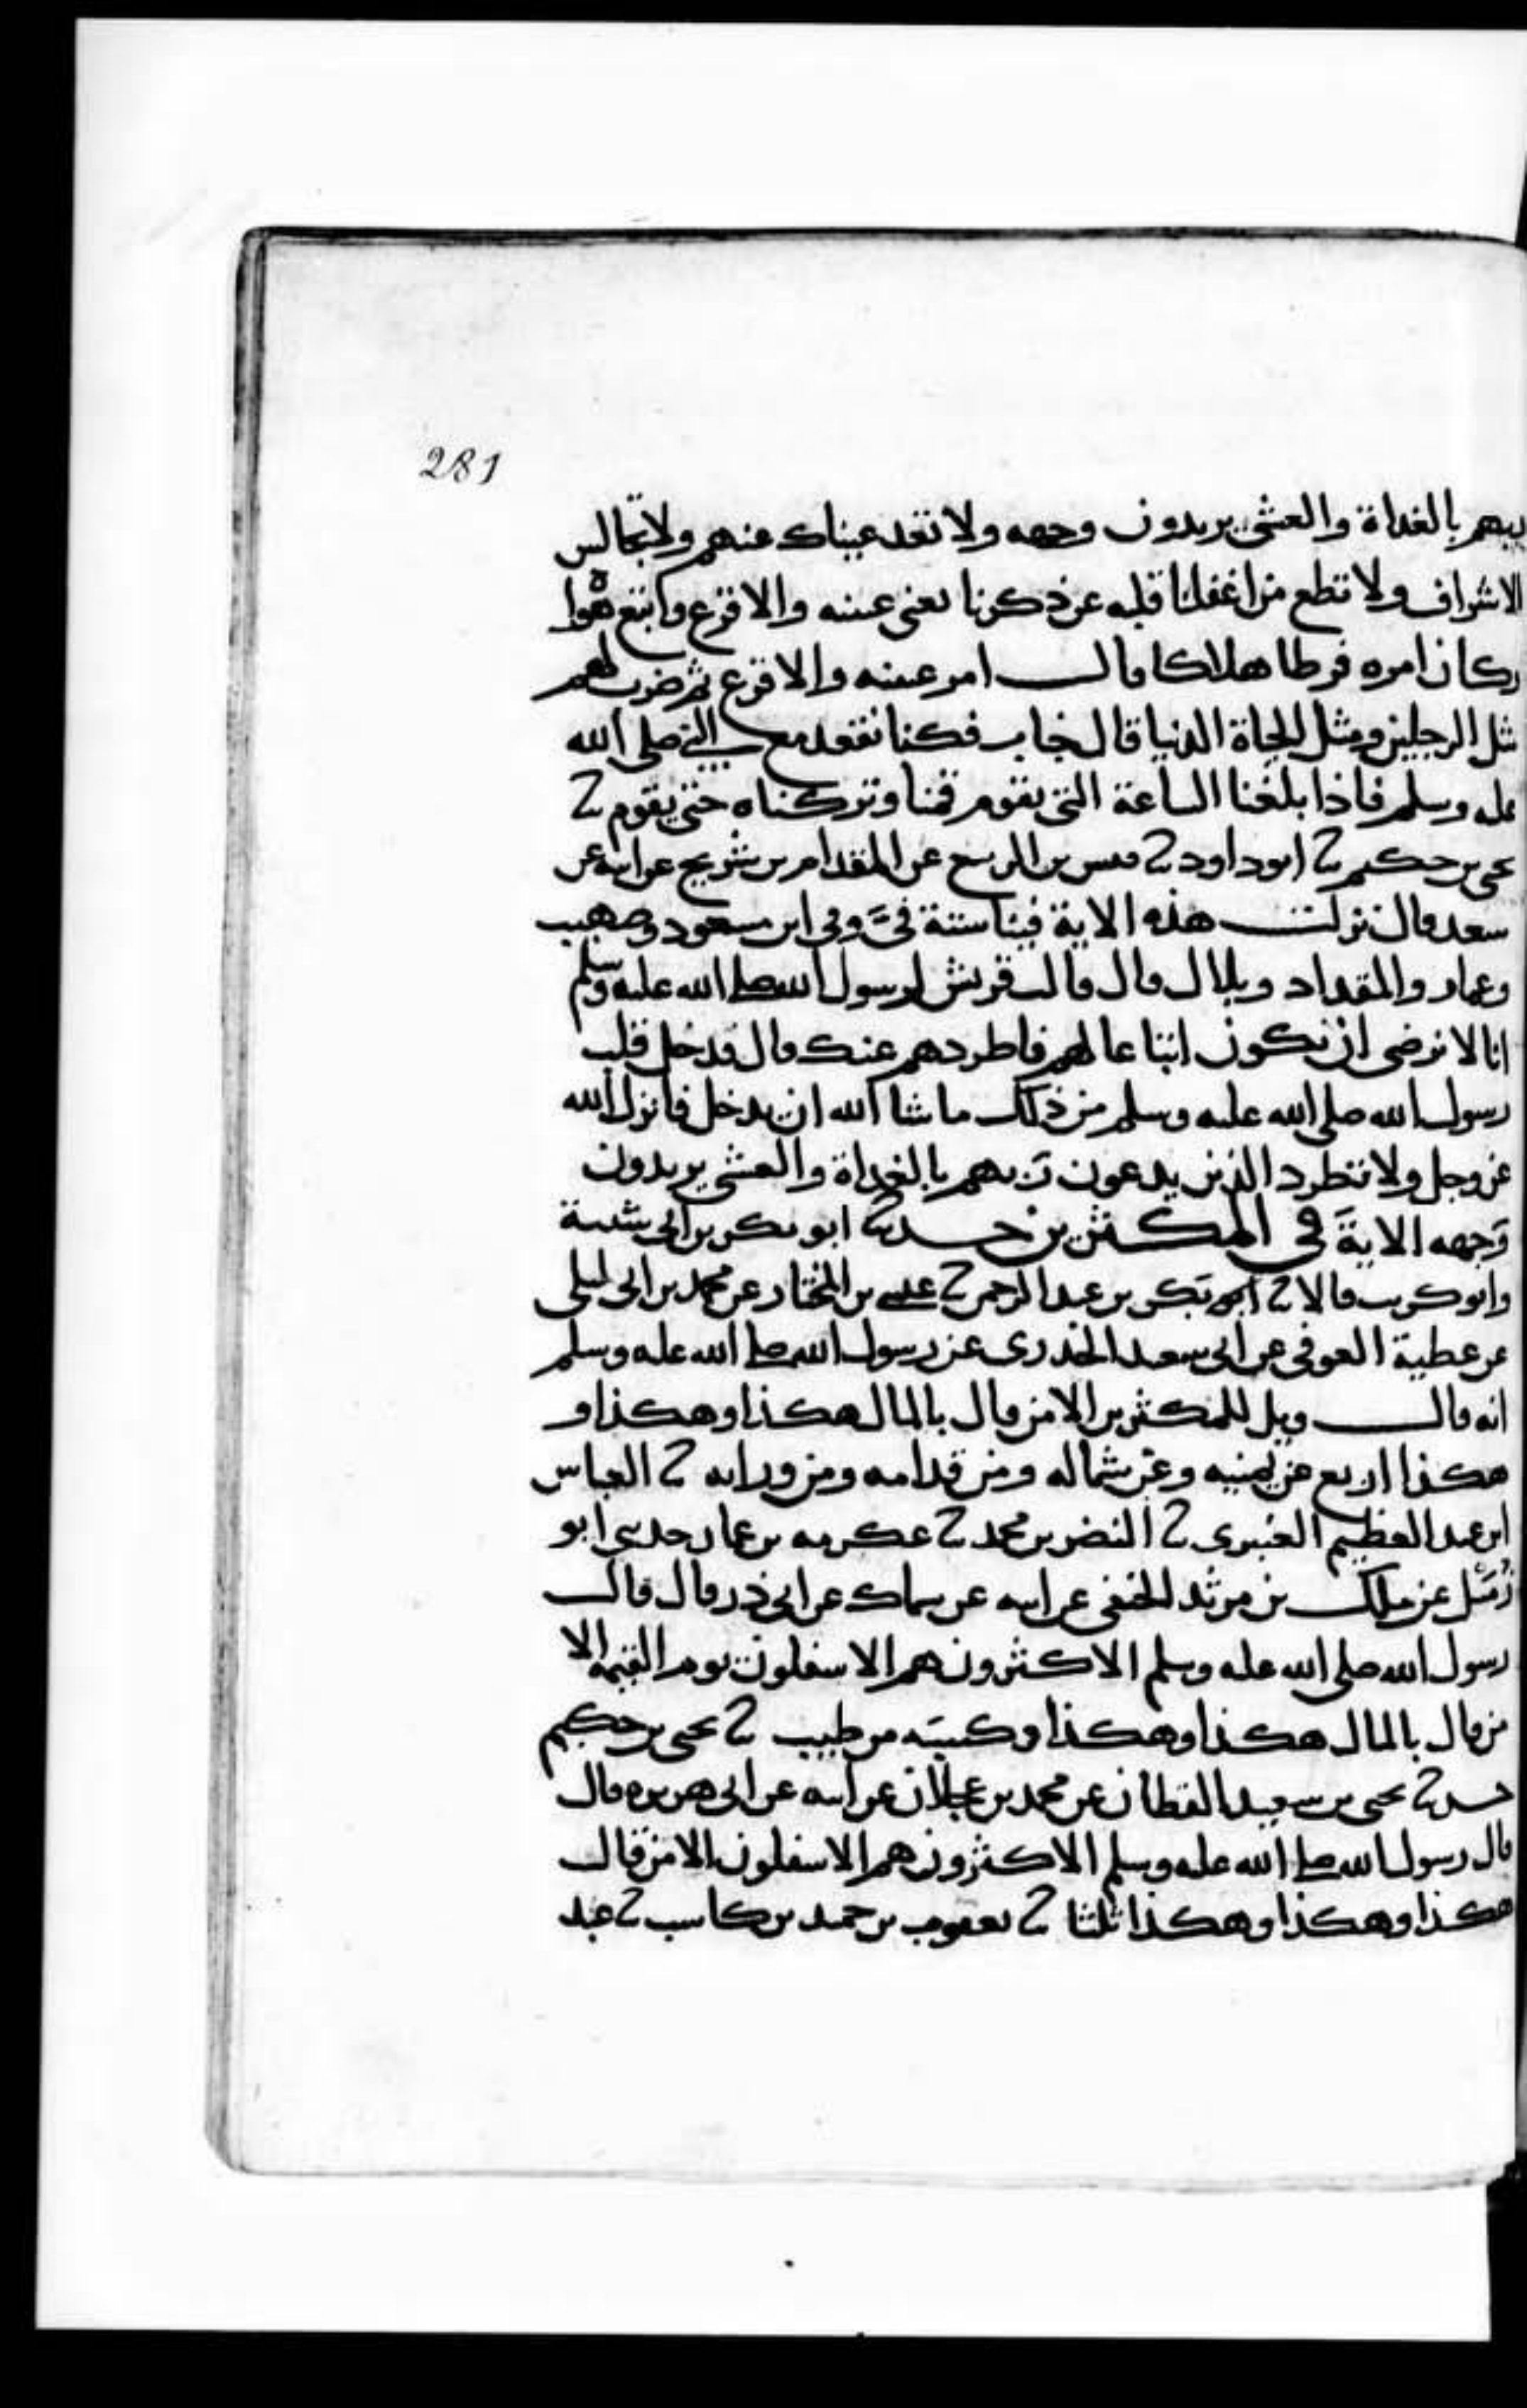 281
ربهم بالغداة والعشي يريدون وجهه ولا تعد عيناك عنهم ولا تجالس
الاشراف ولا تطع من اغفلنا قلبه عن ذكرنا يعني عيينه والاقرع واتبع هواه
وكان امره فرطا هلاكا قال امر عيينه والاقرع ثم ضرب لهم
مثل الرجلين ومثل الحياة الدنيا قال خباب فكنا نقعد مع النبي صلى الله
عليه وسلم فاذا بلغنا الساعة التي يقوم قمنا وتركناه حتى يقوم ثنا
يحيى بن حكيم ثنا ابو داود ثنا قيس بن الربيع عن المقدام بن شريح عن ابيه عن
سعد قال نزلت هذه الاية فينا ستة في وفي ابن مسعود وصهيب
وعمار والمقداد وبلال قال قالت قريش لرسول الله صلى الله عليه وسلم
انا لا نرضى ان نكون اتباعا لهم فاطردهم عنك قال فدخل قلب
رسول الله صلى الله عليه وسلم من ذلك ما شا الله ان يدخل فانزل الله
عز وجل ولا تطرد الذين يدعون ربهم بالغداة والعشي يريدون
وجهه الاية في المكثرين حدثنا ابو بكر بن ابي شيبة
وابو كريب قالا ثنا بكر بن عبد الرحمن ثنا عيسى بن المختار عن محمد بن ابي ليلى
عن عطية العوفي عن ابي سعيد الخدري عن رسول الله صلى الله عليه وسلم
انه قال ويل للمكثرين الا من قال بالمال هكذا وهكذا و
هكذا اربع عن يمينه وعن شماله ومن قدامه ومن ورايه ثنا العباس
ابن عبد العظيم العنبري ثنا النضر بن محمد ثنا عكرمه بن عمار حدثني ابو
زميل عن ملك بن مرثد الحنفي عن ابيه عن سماك عن ابي ذر قال قال
رسول الله صلى الله عليه وسلم الاكثرون هم الاسفلون يوم القيمة الا
من قال بالمال هكذا وهكذا وكسبه من طيب ثنا يحيى بن حكيم
حدثنا يحيى بن سعيد القطان عن محمد بن عجلان عن ابيه عن ابي هريره قال
قال رسول الله صلى الله عليه وسلم الاكثرون هم الاسفلون الا من قال
هكذا وهكذا وهكذا ثلثا ثنا يعقوب بن حميد بن كاسب ثنا عبد